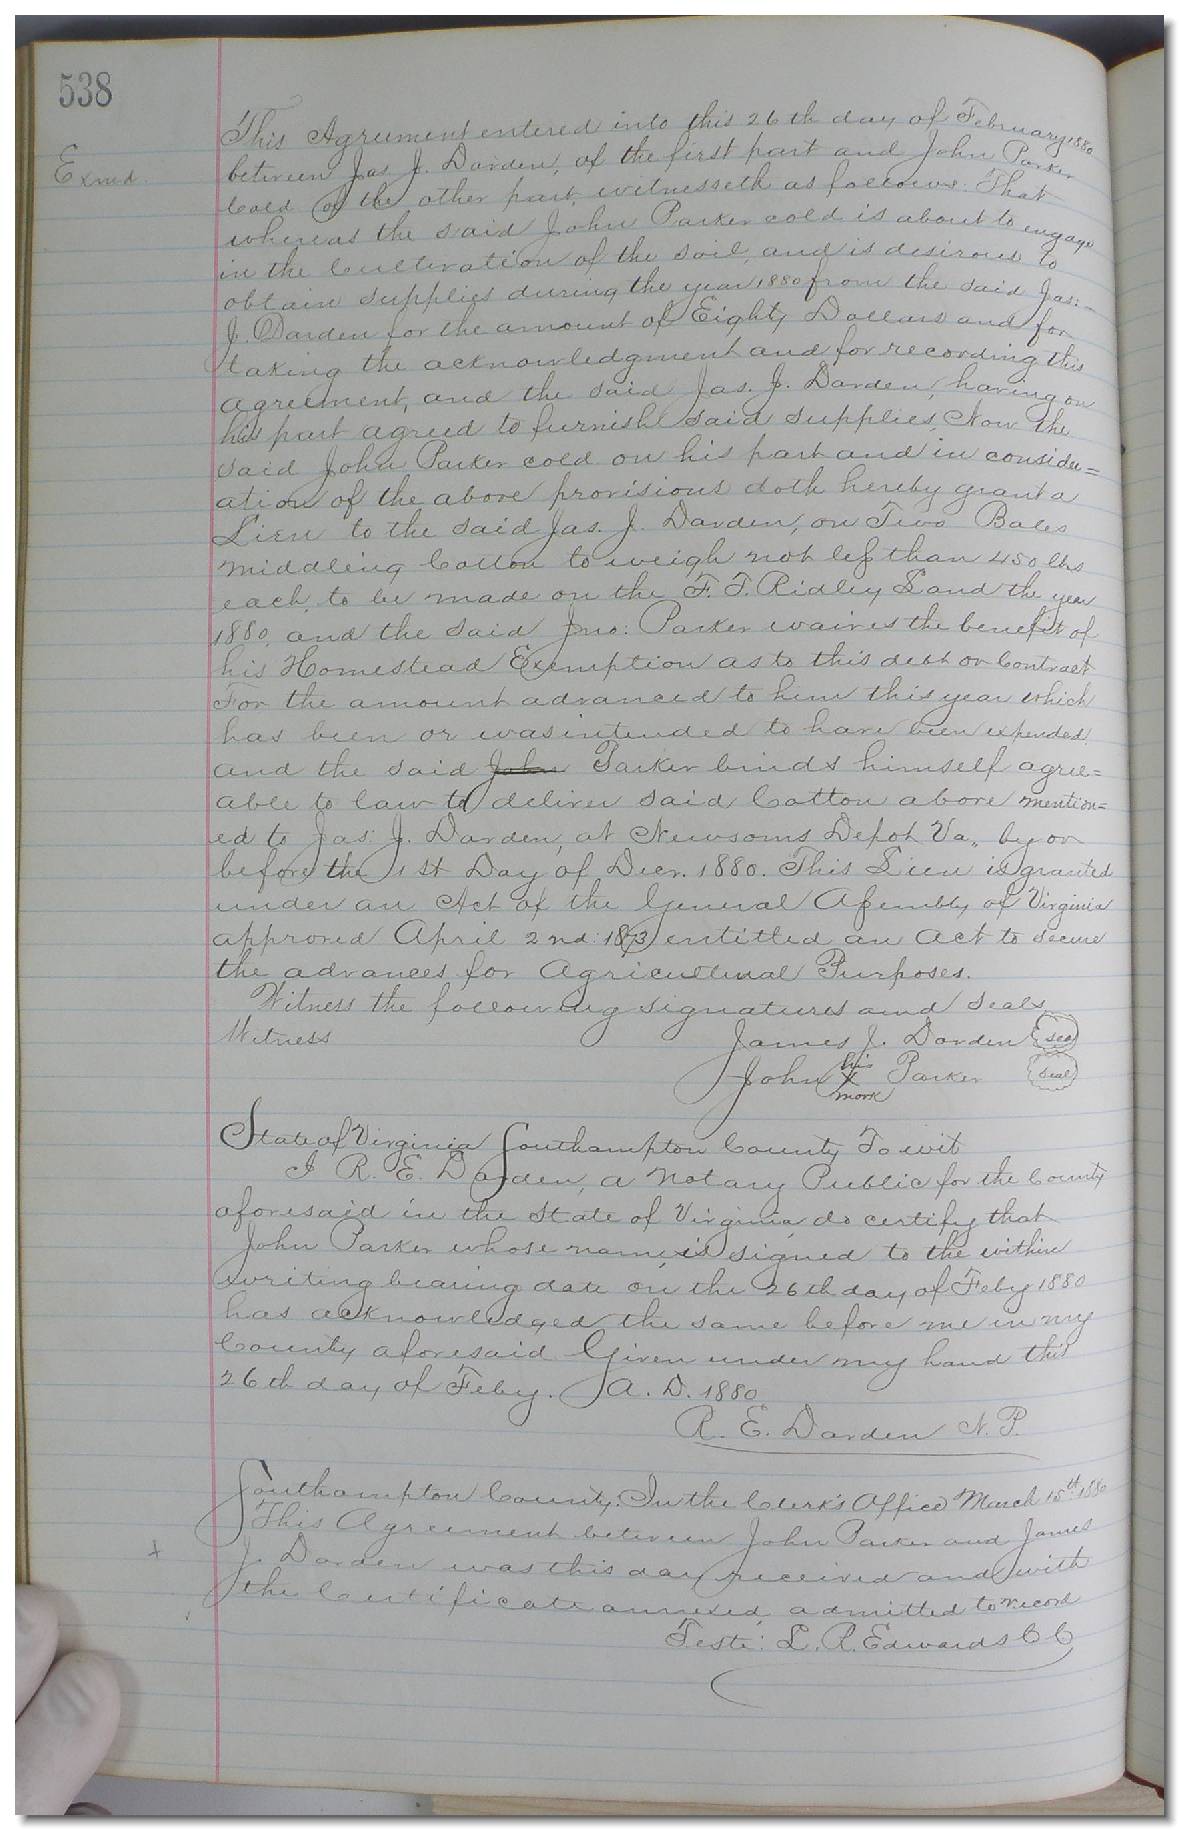 538
This Agreement entered into this 26th day of February 1880
Exmd.
between Jas. J. Darden, of the first part and John Parker
Cold of the other part, witnesseth as follows: That
whereas the said John Parker cold is about to engage
in the Cultivation of the soil, and is desirous to
obtain supplies during the year 1880 from the said Jas:
J. Darden for the amount of Eighty Dollars and for
taking the acknowledgment and for recording this
agreement, and the said Jas. J. Darden, having on
his part agreed to furnish said supplies, Now the
said John Parker cold on his part and in consider=
ation of the above provisions doth hereby grant a
Lien to the said Jas. J. Darden, on Two Bales
middling Cotton to weigh not less than 450 lbs
each, to be made on the F. T. Ridley Land the year
1880, and the said Jno: Parker waives the benefit of
his Homestead Exemption as to this debt or Contract
For the amount advanced to him this year which
has been or was intended to have been expended.
and the said John Parker binds himself agree=
able to law to deliver said Cotton above mention=
ed to Jas: J. Darden, at Newsoms Depot Va., by or
before the 1st Day of Decr. 1880. This Lien is granted
under an Act of the General Assembly of Virginia
approved April 2nd: 1873 entitled an Act to secure
the advances for Agricultural Purposes.
Witness the following signatures and seals
Witness James J. Darden seal
John his X mark Parker seal
State of Virginia Southampton County To wit
I R. E. Darden, a Notary Public for the County
aforesaid in the State of Virginia, do certify that
John Parker whose name is signed to the within
writing bearing date on the 26th day of Feby 1880
has acknowledged the same before me in my
County aforesaid Given under my hand this
26th day of Feby. A. D. 1880
R. E. Darden N. P.
Southampton County: In the Clerk's Office March 15th 1880
This Agreement between John Parker and James
J. Darden was this day received and with
the Certificate annexed, admitted to record
Teste: L. R. Edwards C C